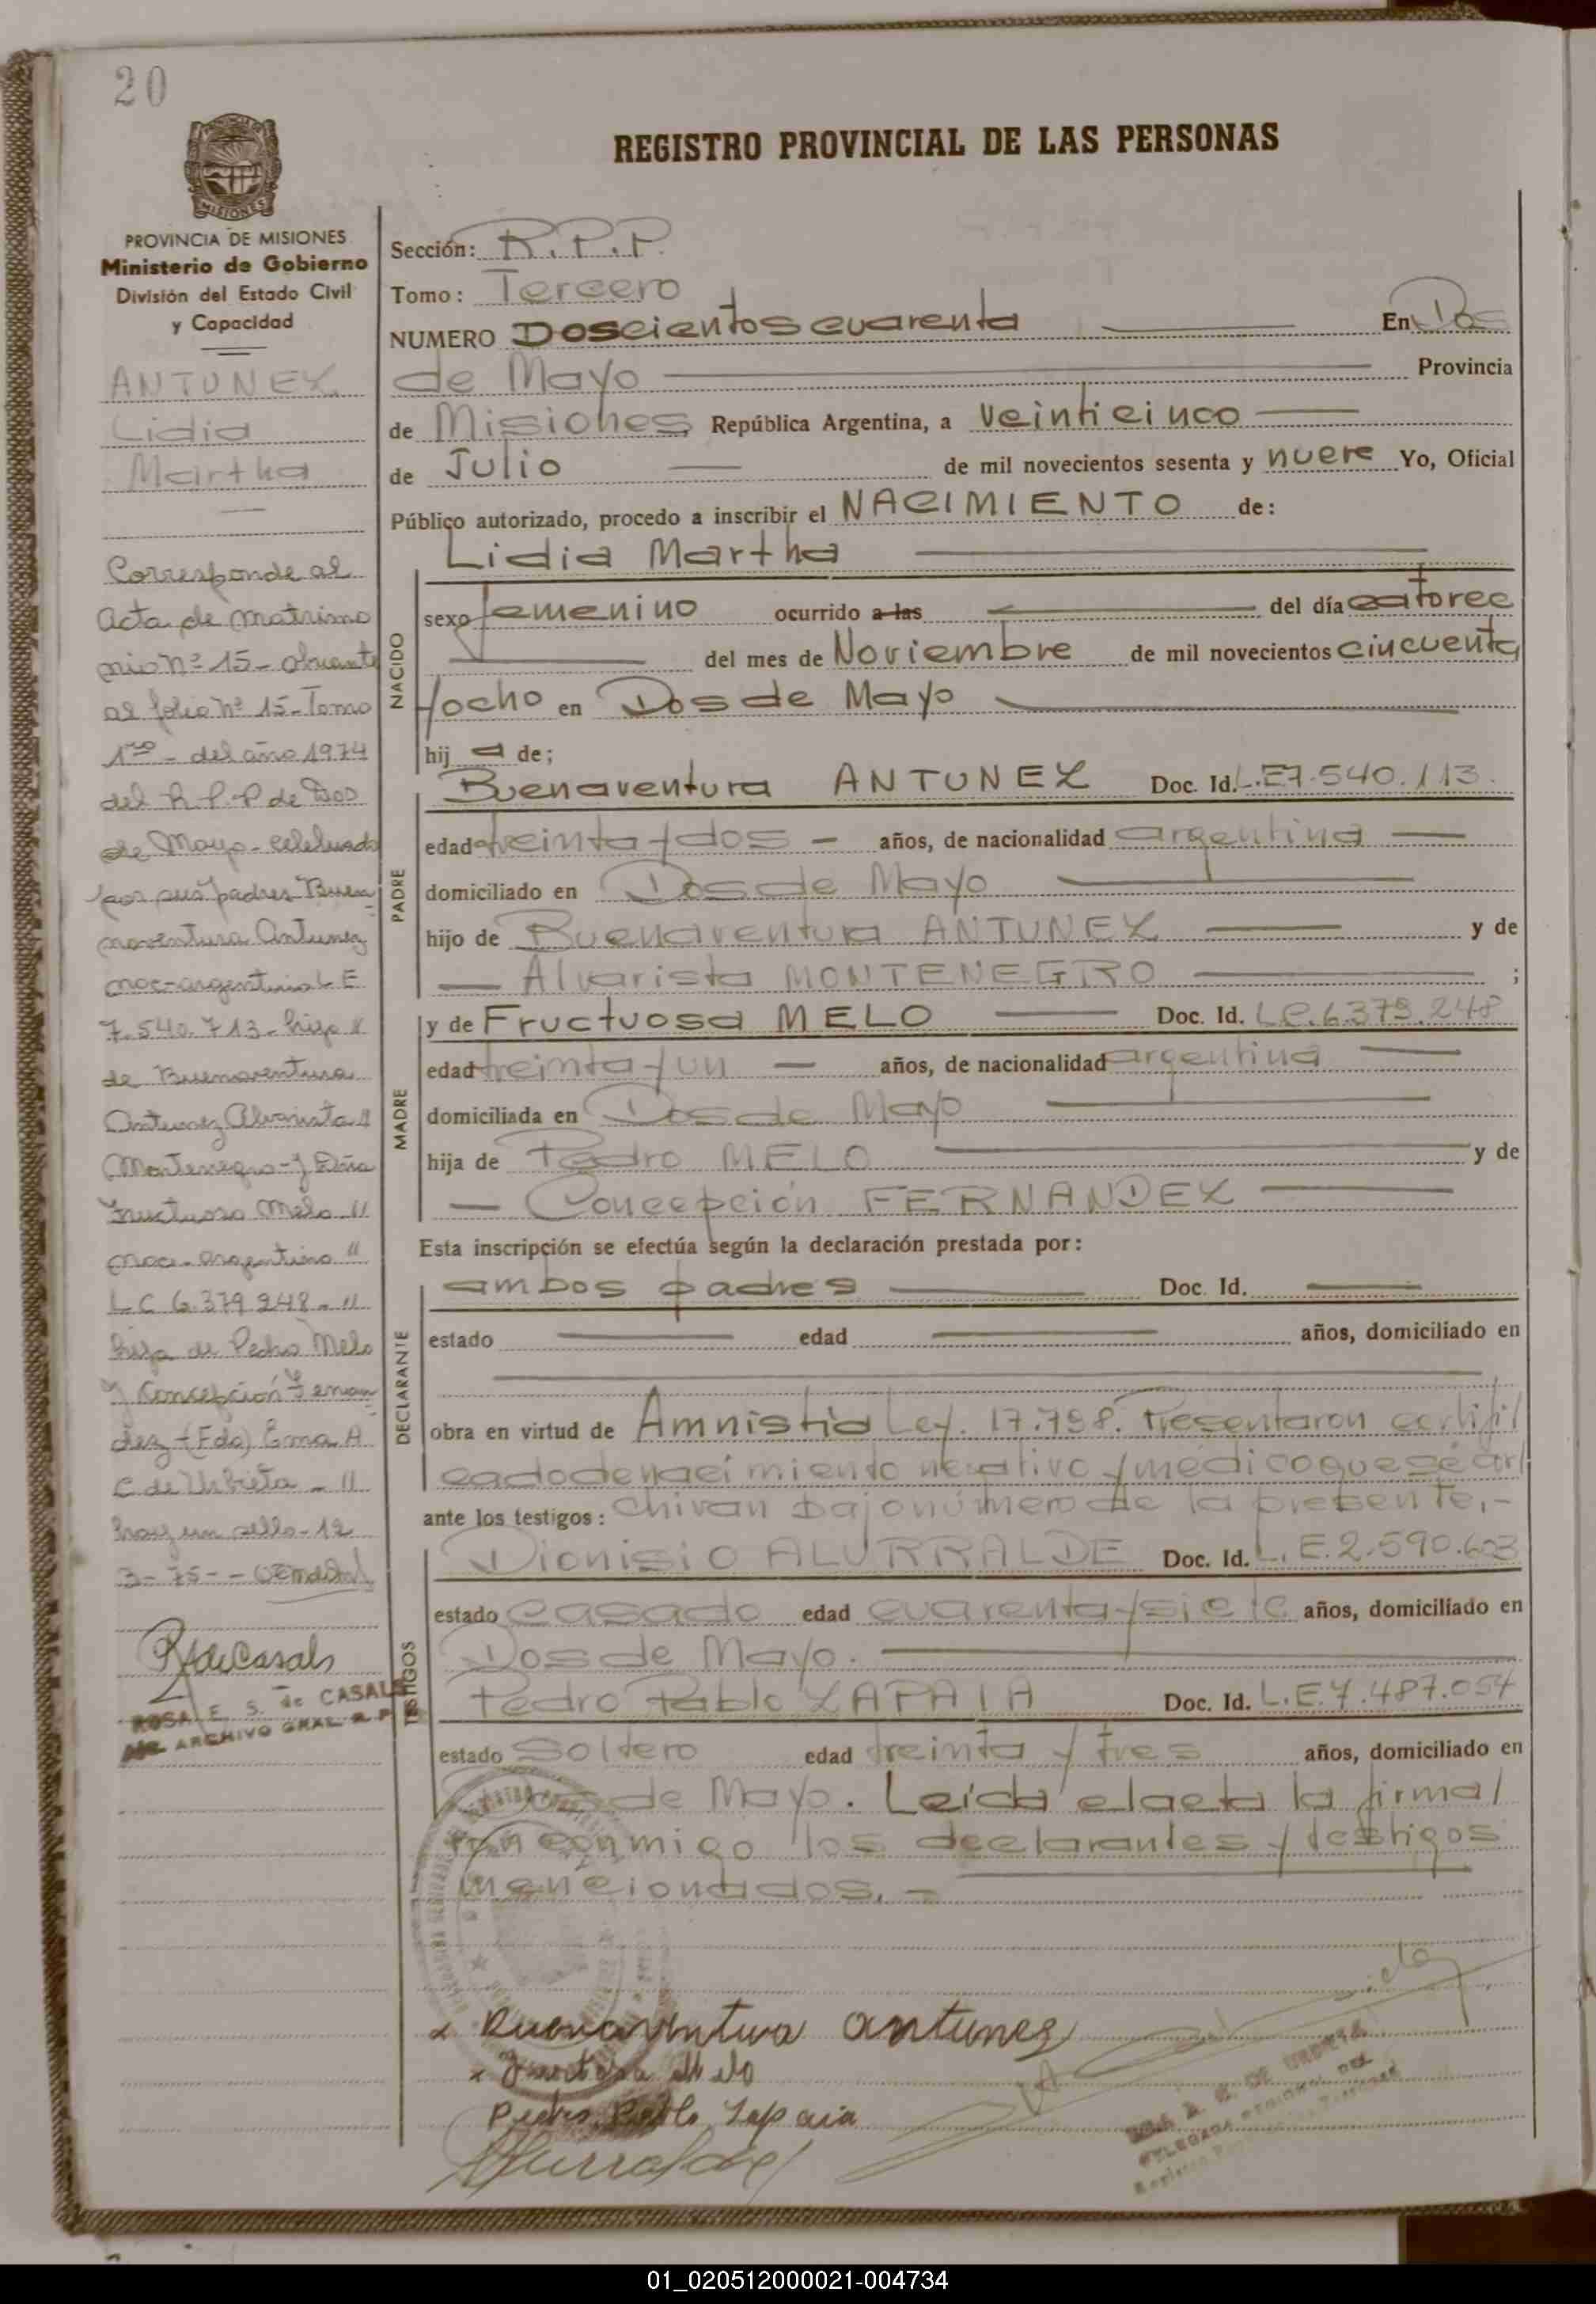 20
REGISTRO PROVINCIAL DE LAS PERSONAS
MISIONES
PROVINCIA DE MISIONES
Ministerio de Gobierno
División del Estado Civil
y Capacidad
ANTUNEZ
Lidia
Martha
Corresponde al
acta de matrimo
nio Nº 15 - obrante
al folio Nº 15 - Tomo
1ro - del año 1974
del R.P.P de Dos
de Mayo - celebrado
por sus padres Buen
aventura Antunez
nac-argentina L E
7.540.713 - hijo "
de Buenaventura
Antunez Alvarista "
Montenegro - y Doña
Fructuosa Melo "
nac. argentina "
L C 6.379.248 - "
hija de Pedro Melo
y Concepción Fernan
dez - (Fdo) Ema A
C de Urbieta - "
hay un sello - 12
3 - 75 -
RSdeCasals
ROSA E. S. de CASALS
ARCHIVO GRAL R.P.P
Sección: R.P.P.
Tomo: Tercero
NUMERO Doscientos cuarenta En Dos
de Mayo Provincia
de Misiones República Argentina, a veinticinco
de Julio de mil novecientos sesenta y nueve Yo, Oficial
Público autorizado, procedo a inscribir el NACIMIENTO de:
Lidia Martha
NACIDO
sexo femenino ocurrido a las del día catorce
del mes de Noviembre de mil novecientos cincuenta
y ocho en Dos de Mayo
hij a de;
Buenaventura ANTUNEZ Doc. Id. L.E 7.540.113.
PADRE
edad treinta y dos - años, de nacionalidad argentina
domiciliado en Dos de Mayo
hijo de Buenaventura ANTUNEZ y de
Alvarista MONTENEGRO ;
y de Fructuosa MELO Doc. Id. L.C.6.379.248
MADRE
edad treinta y un años, de nacionalidad argentina
domiciliada en Dos de Mayo
hija de Pedro MELO y de
Concepción FERNANDEZ
Esta inscripción se efectúa según la declaración prestada por:
ambos padres Doc. Id.
DECLARANTE
estado edad años, domiciliado en
obra en virtud de Amnistia Ley. 17.798. Presentaron certifi/
cado de nacimiento negativo y médico que se ar/
ante los testigos: chivan bajo número de la presente.-
TESTIGOS
Dionisio ALURRALDE Doc. Id. L.E.2.590.603
estado casado edad cuarenta y siete años, domiciliado en
Dos de Mayo.
Pedro Pablo ZAPAIA Doc. Id. L.E.7.487.054
estado Soltero edad treinta y tres años, domiciliado en
Dos de Mayo. Leída el acta la firma/
ran conmigo los declarantes y testigos
mencionados. -
x Buenaventura antunez
x Fructuosa Melo
Pedro Pablo Zapaia
Alurralde
DELEGADA REGIONAL DEL
01_020512000021-004734